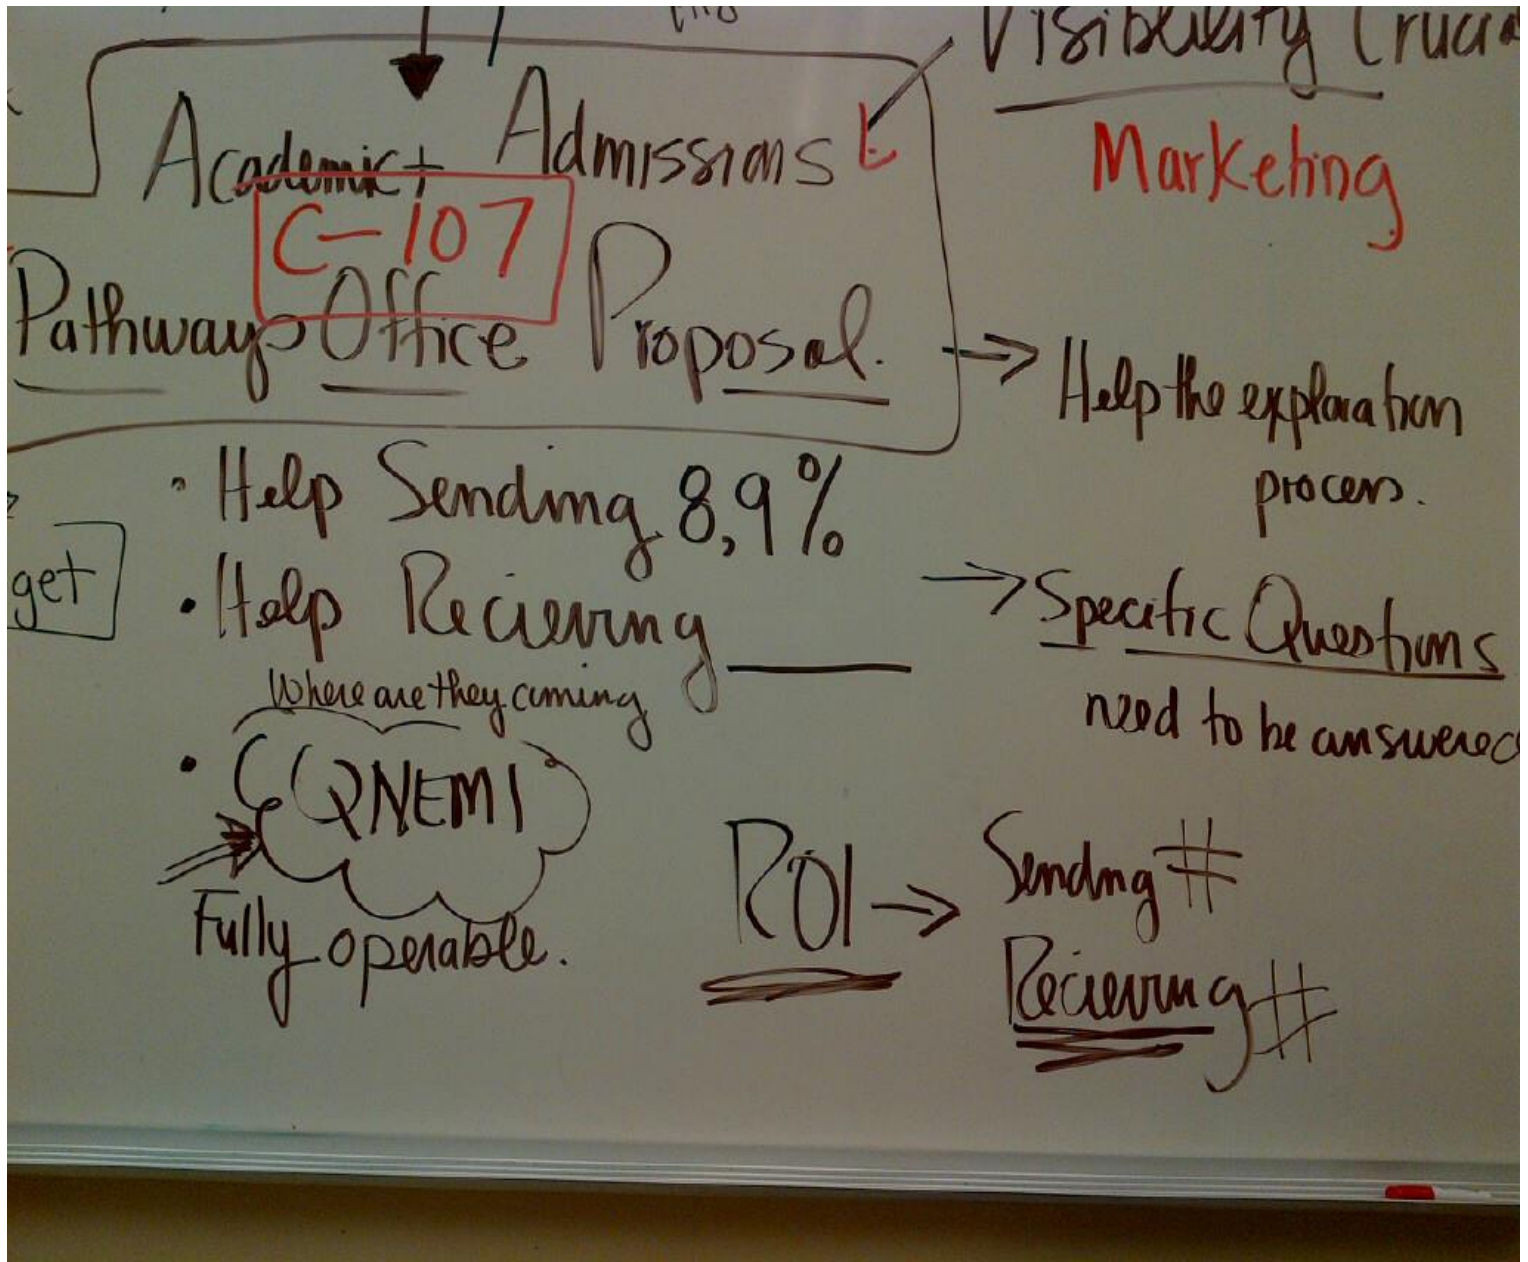 Visibility Crucia
Marketing
Academic + Admissions
C-107
Pathways Office Proposal.
→ Help the exploration
process.
• Help Sending 8,9%
get
• Help Recieving ____
Where are they coming
→ Specific Questions
need to be answered
• QNEMI
Fully operable.
ROI → Sending #
Recieving #